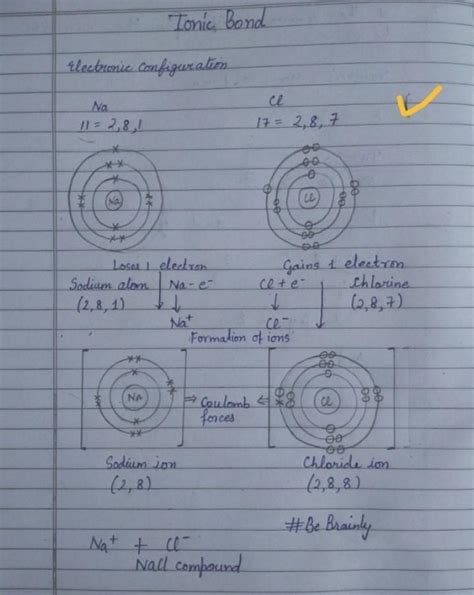 Ionic Bond
Electronic Configuration
Na Cl
11 = 2,8,1 17 = 2,8,7
Na Cl
Loses 1 electron Gains 1 electron
Sodium atom Na-e⁻ Cl+e⁻ Chlorine
(2,8,1) ↓ ↓ (2,8,7)
Na⁺ Cl⁻
Formation of ions
Na ⇒ Coulomb ⇐ Cl
forces
Sodium ion Chloride ion
(2,8) (2,8,8)
#Be Brainly
Na⁺ + Cl⁻
NaCl compound